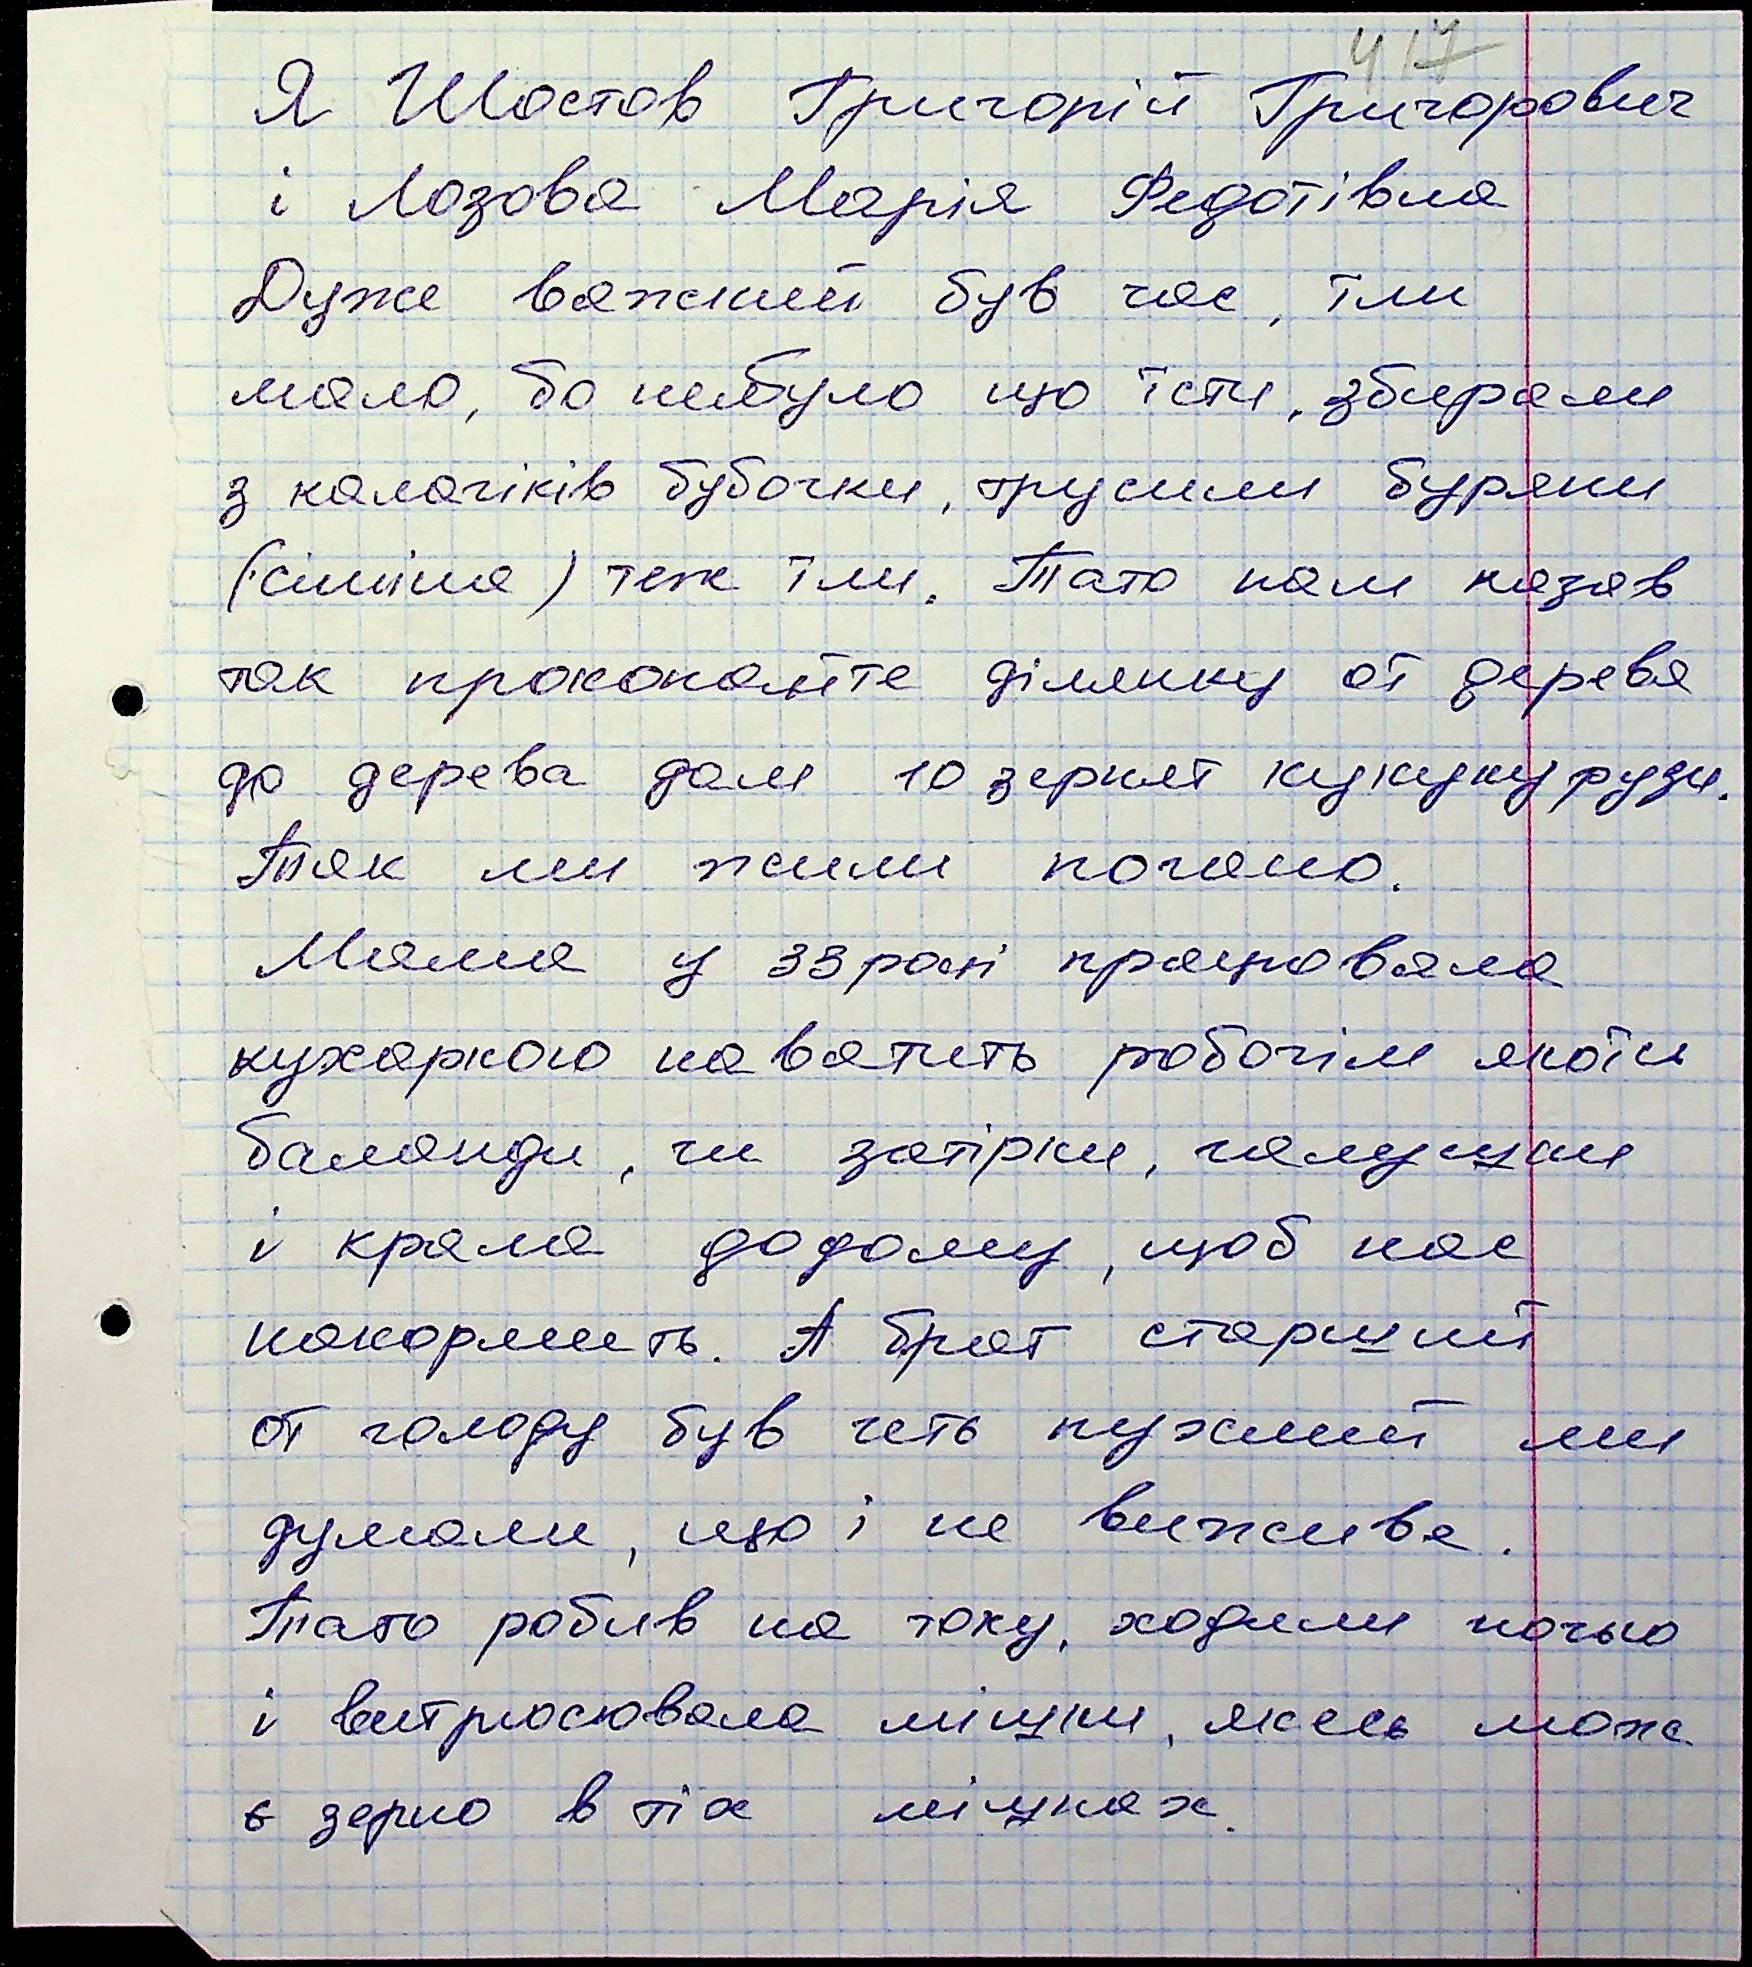 417
Я Шостов Григорій Григорович
і Лозова Марія Федотівна
Дуже важкий був час, їли
мало, бо небуло що їсти, збирали
з калачіків бубочки, трусили буряни
(сіміна) теж їли. Тато нам казав
так прокопайте ділянку от дерева
до дерева дам 10 зернят кукукурузи.
Так ми жили погано.
Мама у 33 році працювала
кухаркою наватить робочім якоїсь
баланди, чи затірки, галушки
і крала додому, щоб нас
накормить. А брат старший
от голоду був геть пухлий ми
думали, що і не вижива.
Тато робив на току, ходили ночью
і витрюсювала мішки, якесь може
є зерно в тіх мішках.